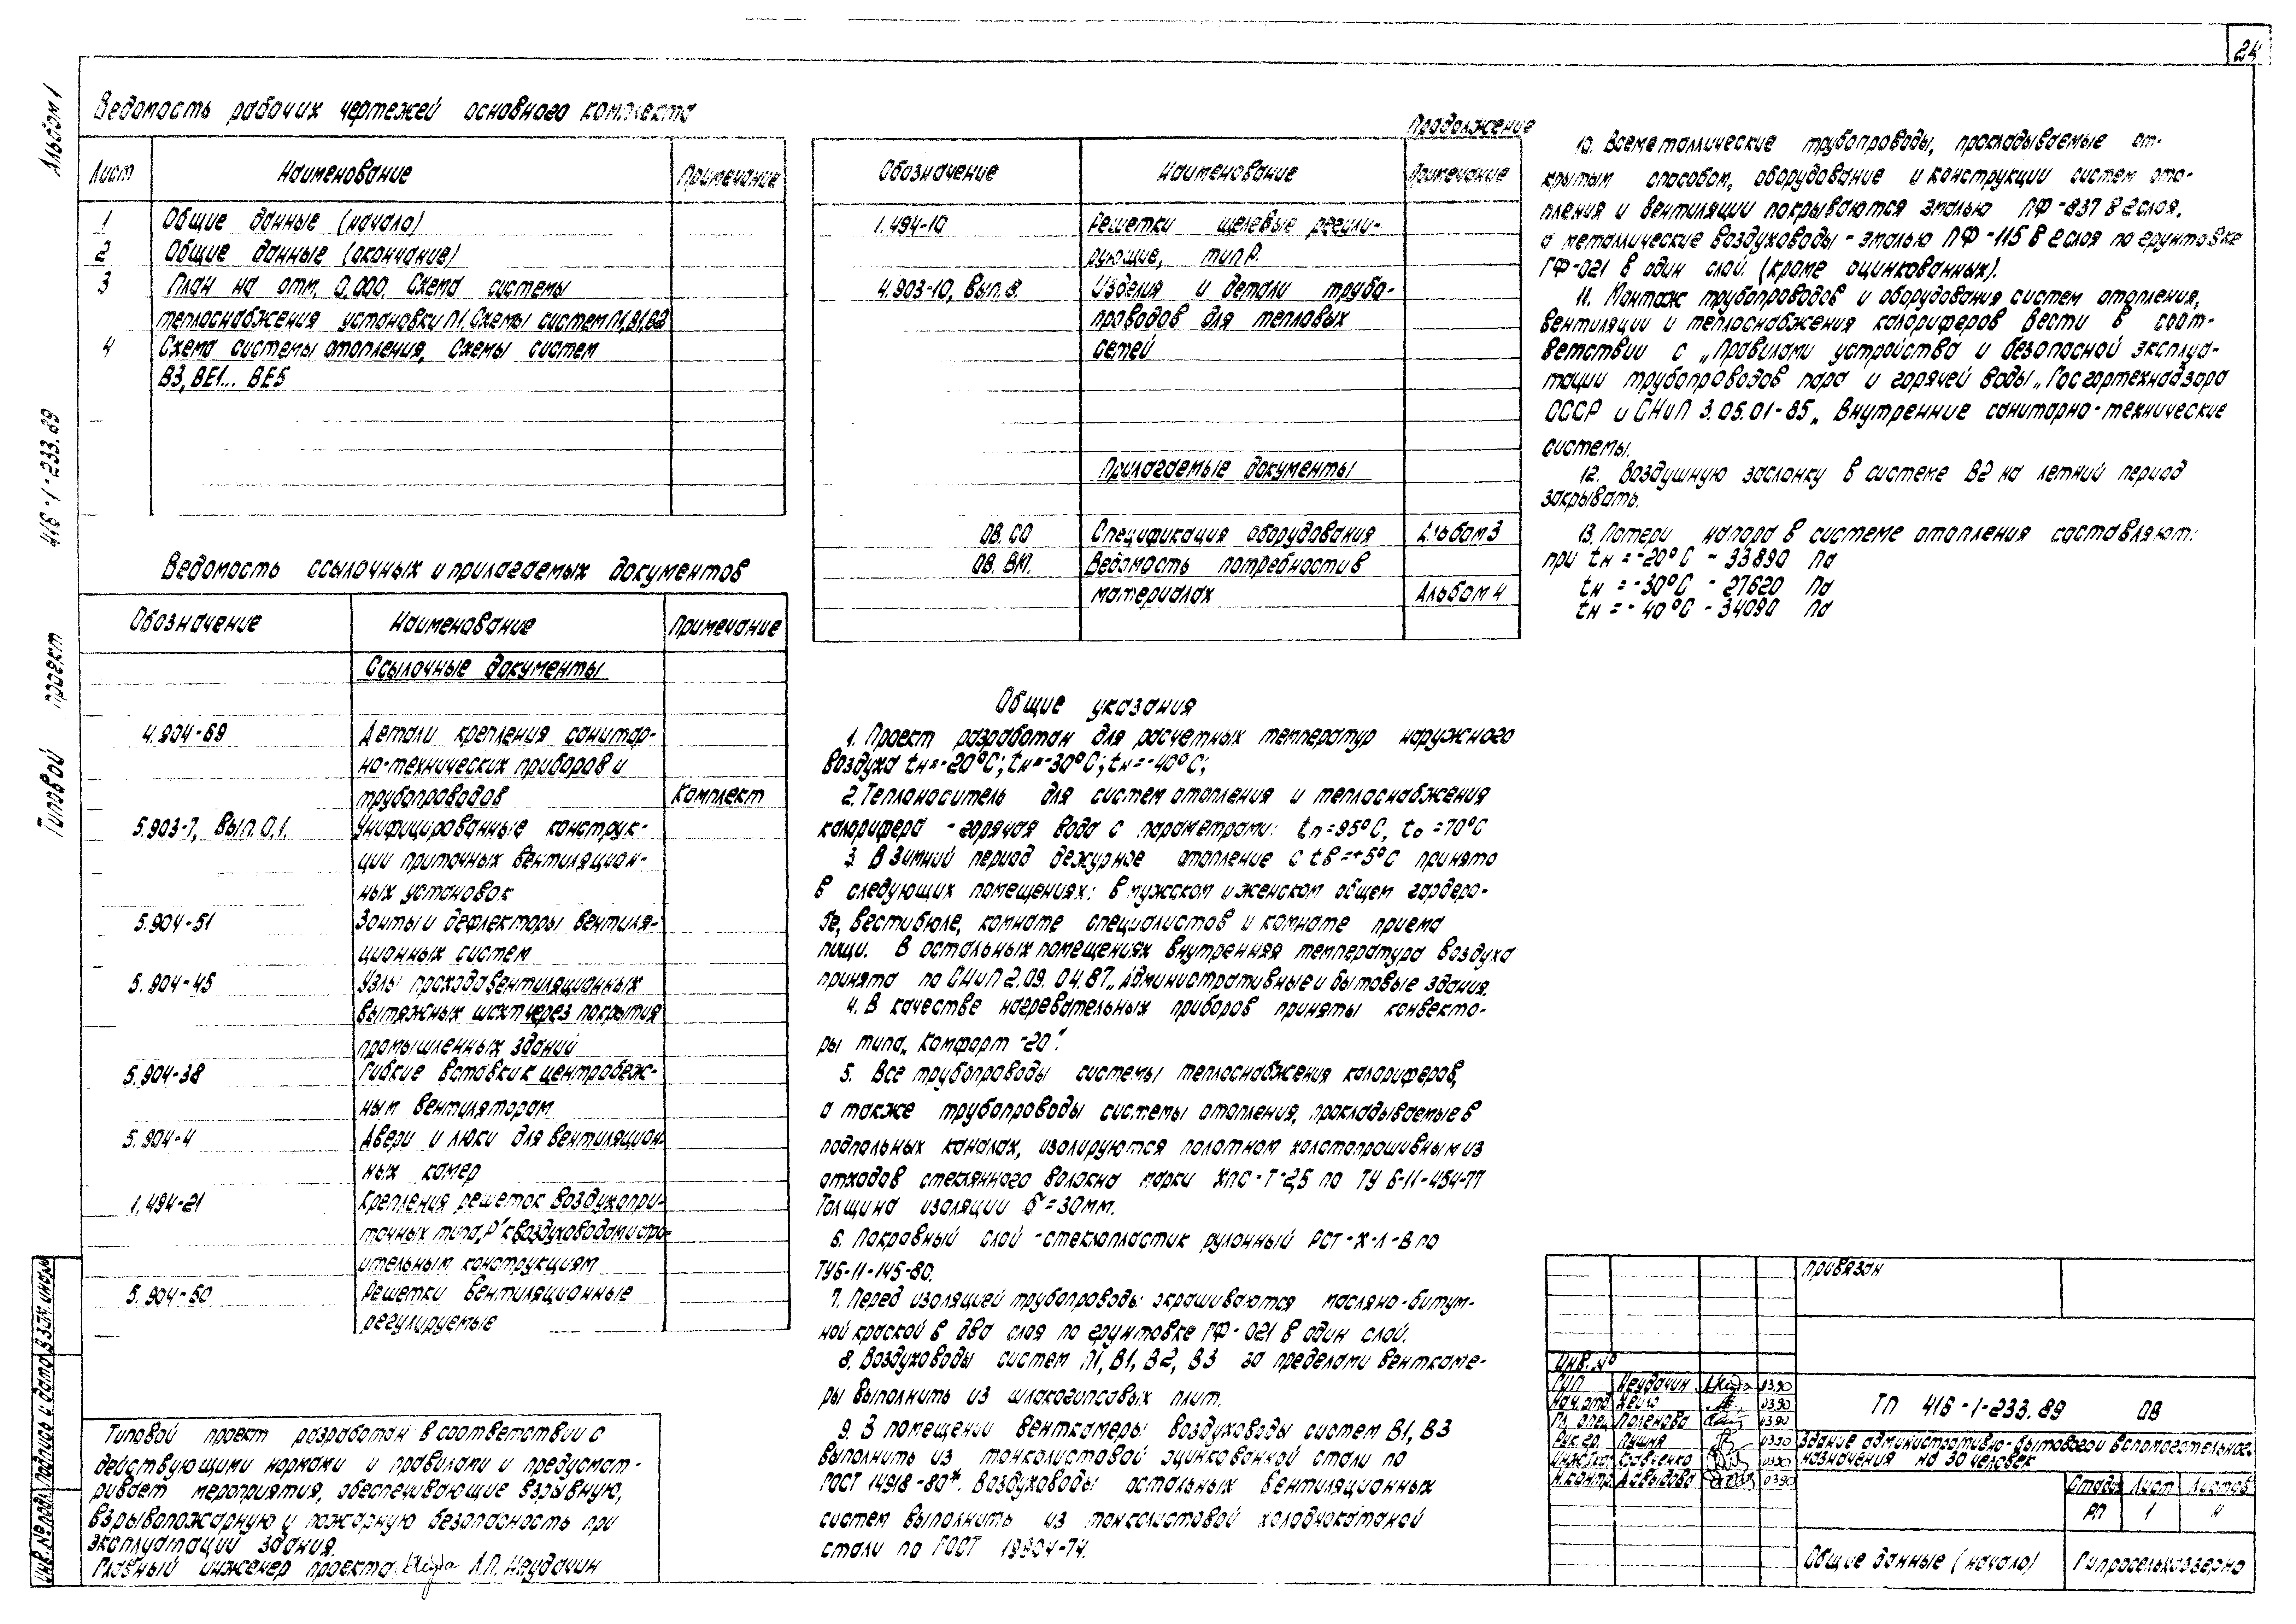 24
Альбом 1
416-1-233.89
Типовой проект
Ведомость рабочих чертежей основного комплекта
Лист Наименование Примечание
1 Общие данные (начало)
2 Общие данные (окончание)
3 План на отм. 0,000. Схема системы
теплоснабжения установки П1, Схемы систем П1, В1, В2
4 Схема системы отопления, Схемы систем
В3, ВЕ1... ВЕ5
Ведомость ссылочных и прилагаемых документов
Обозначение Наименование Примечание
Ссылочные документы
4.904-69 Детали крепления санитар-
но-технических приборов и
трубопроводов Комплект
5.903-7, Вып. 0,1. Унифицированные конструк-
ции приточных вентиляцион-
ных установок
5.904-51 Зонты и дефлекторы вентиля-
ционных систем
5.904-45 Узлы прохода вентиляционных
вытяжных шахт через покрытия
промышленных зданий
5.904-38 Гибкие вставки к центробеж-
ным вентиляторам
5.904-4 Двери и люки для вентиляцион-
ных камер
1.494-21 Крепления решеток воздухопри-
точных типа „Р" к воздуховодам и стро-
ительным конструкциям
5.904-50 Решетки вентиляционные
регулируемые
Типовой проект разработан в соответствии с
действующими нормами и правилами и предусмат-
ривает мероприятия, обеспечивающие взрывную,
взрывопожарную и пожарную безопасность при
эксплуатации здания.
Главный инженер проекта Л.П. Неудачин
Инв. № подл. Подпись и дата Взам. инв. №
Продолжение
Обозначение Наименование Примечание
1.494-10 Решетки щелевые регули-
рующие, тип Р.
4.903-10, Вып. 8. Изделия и детали трубо-
проводов для тепловых
сетей
Прилагаемые документы
ОВ. СО Спецификация оборудования Альбом 3
ОВ. ВМ. Ведомость потребности в
материалах Альбом 4
Общие указания
1. Проект разработан для расчетных температур наружного
воздуха tн=-20°С; tн=-30°С; tн=-40°С;
2. Теплоноситель для систем отопления и теплоснабжения
калорифера - горячая вода с параметрами: tп=95°С, tо=70°С
3. В зимний период дежурное отопление с tв=+5°С принято
в следующих помещениях: в мужском и женском общем гардеро-
бе, вестибюле, комнате специалистов и комнате приема
пищи. В остальных помещениях внутренняя температура воздуха
принята по СНиП 2.09.04.87 „Административные и бытовые здания.
4. В качестве нагревательных приборов приняты конвекто-
ры типа „Комфорт-20".
5. Все трубопроводы системы теплоснабжения калориферов,
а также трубопроводы системы отопления, прокладываемые в
подпольных каналах, изолируются полотном холстопрошивным из
отходов стеклянного волокна марки ХПС-Т-2,5 по ТУ 6-11-454-77
Толщина изоляции δ=30мм.
6. Покровный слой - стеклопластик рулонный РСТ-Х-Л-В по
ТУ6-11-145-80.
7. Перед изоляцией трубопроводы окрашиваются масляно-битум-
ной краской в два слоя по грунтовке ГФ-021 в один слой.
8. Воздуховоды систем П1, В1, В2, В3 за пределами венткаме-
ры выполнить из шлакогипсовых плит.
9. В помещении венткамеры воздуховоды систем В1, В3
выполнить из тонколистовой оцинкованной стали по
ГОСТ 14918-80*. Воздуховоды остальных вентиляционных
систем выполнить из тонколистовой холоднокатаной
стали по ГОСТ 19904-74.
10. Все металлические трубопроводы, прокладываемые от-
крытым способом, оборудование и конструкции систем ото-
пления и вентиляции покрываются эмалью ПФ-837 в 2 слоя,
а металлические воздуховоды - эмалью ПФ-115 в 2 слоя по грунтовке
ГФ-021 в один слой. (кроме оцинкованных).
11. Монтаж трубопроводов и оборудования систем отопления,
вентиляции и теплоснабжения калориферов вести в соот-
ветствии с „Правилами устройства и безопасной эксплуа-
тации трубопроводов пара и горячей воды„ Госгортехнадзора
СССР и СНиП 3.05.01-85 „ Внутренние санитарно-технические
системы.
12. Воздушную заслонку в системе В2 на летний период
закрывать.
13. Потери напора в системе отопления составляют:
при tн=-20°С - 33890 Па
tн=-30°С - 27620 Па
tн=-40°С - 34090 Па
Привязан
Инв. №
ГИП Неудачин 03.90
Нач. отд. 03.90
Гл. спец. Поленова 03.90
Рук. гр. 03.90
Савченко 03.90
Н. контр. Давыдова 03.90
ТП 416-1-233.89 ОВ
Здание административно-бытового и вспомогательного
назначения на 30 человек
Стадия Лист Листов
РП 1 4
Общие данные (начало)
Гипросельхоззерно